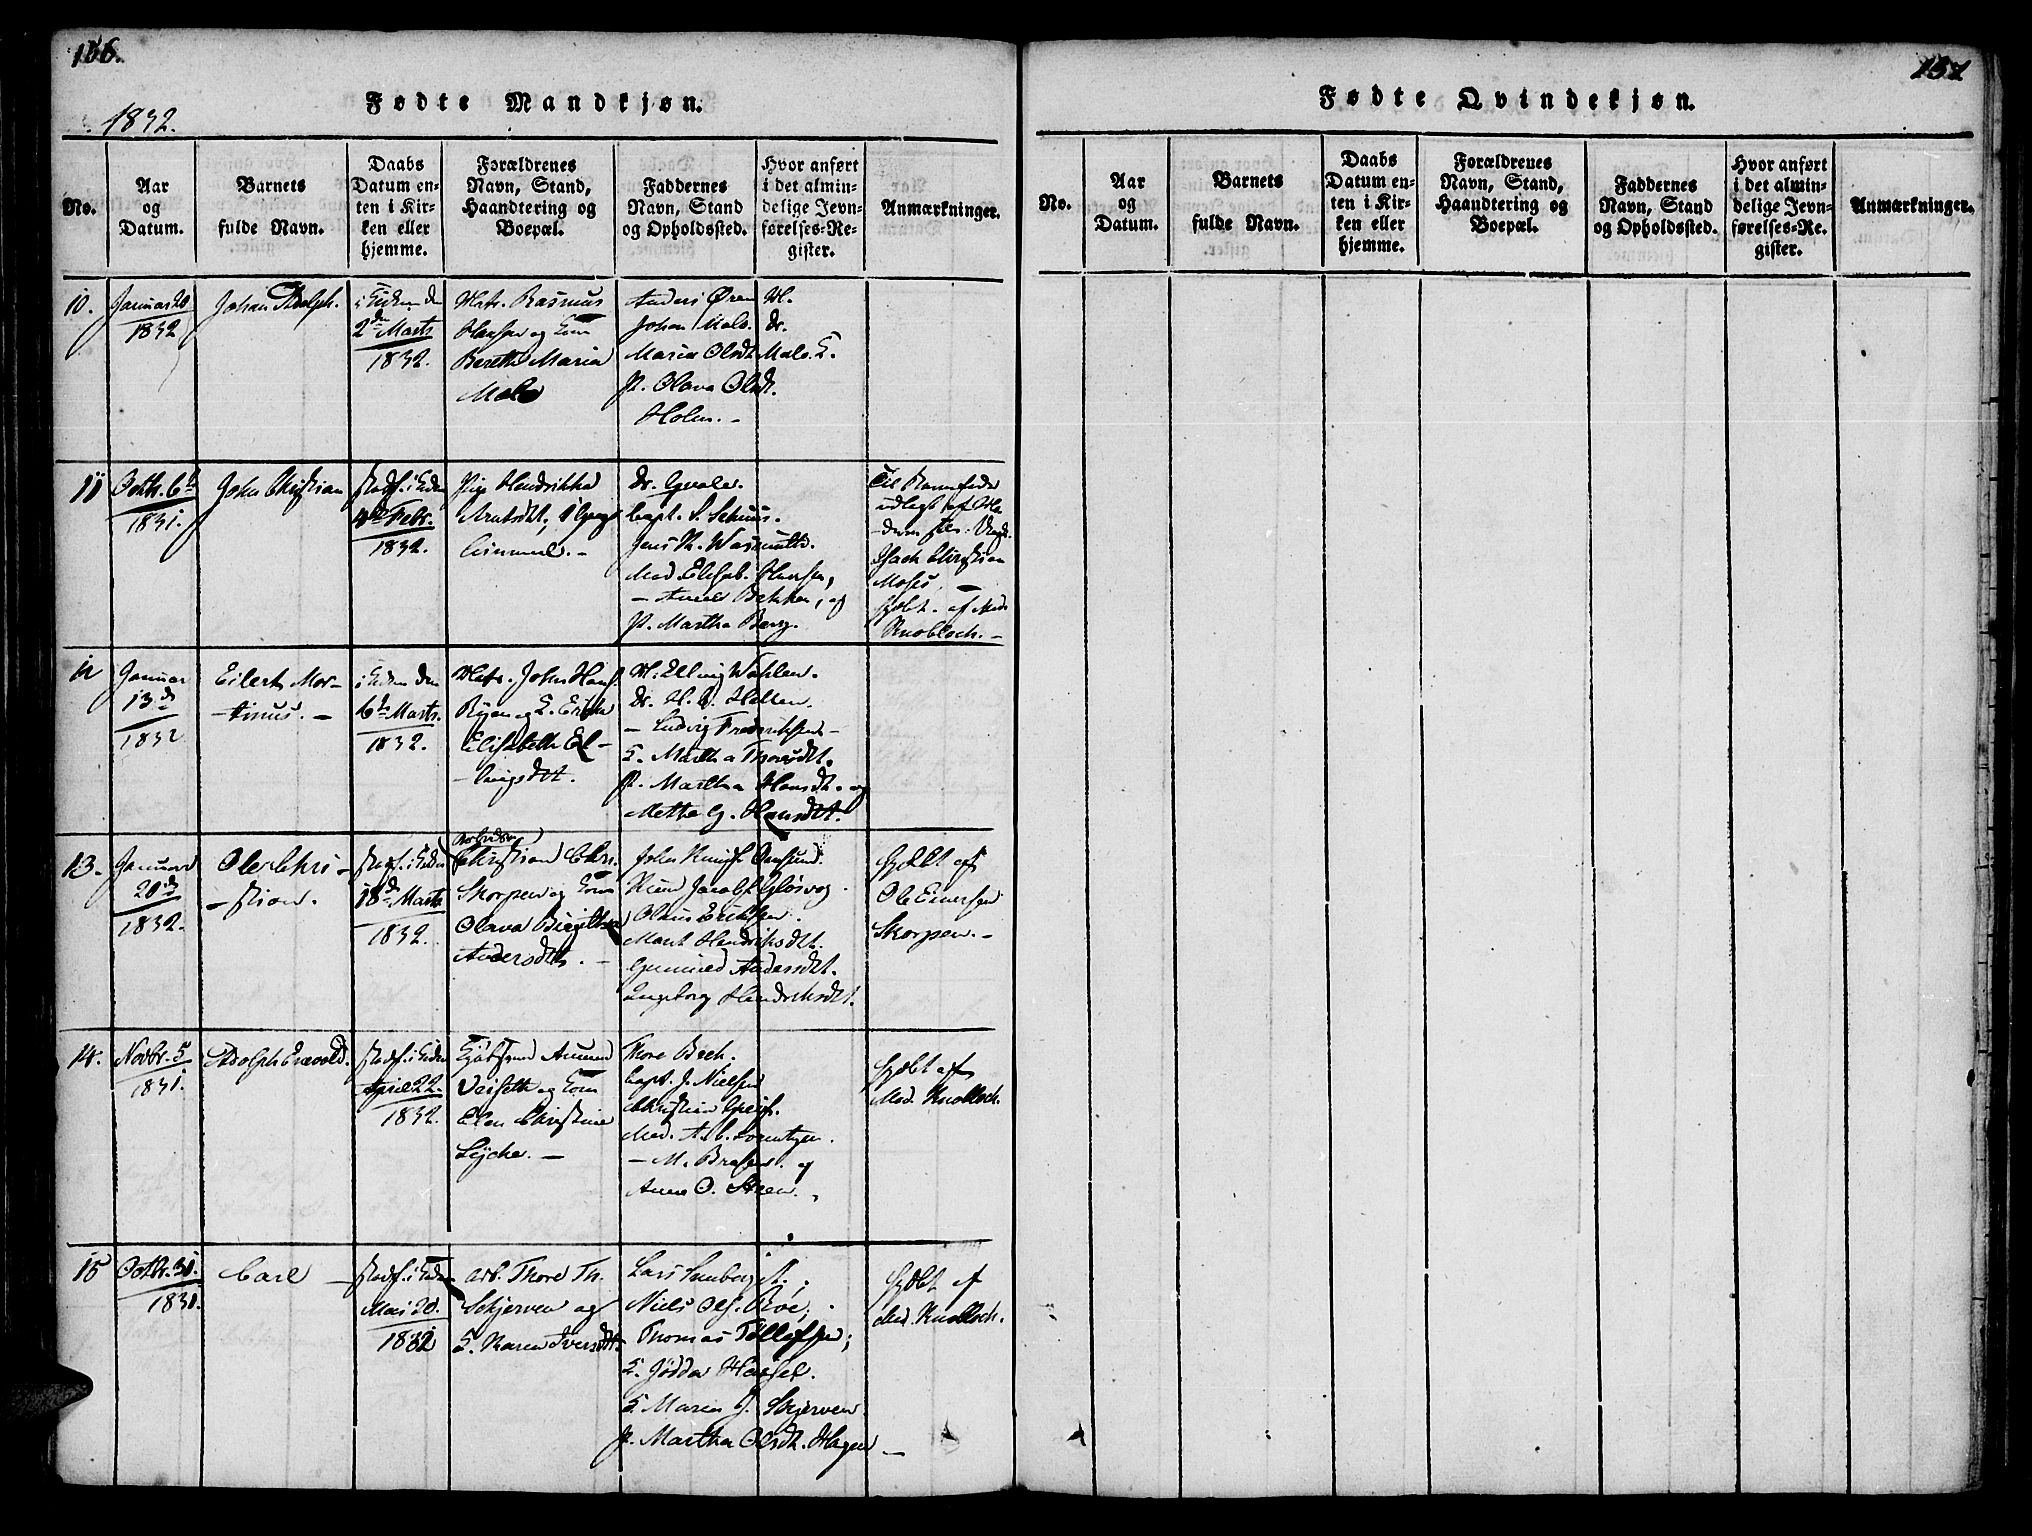 156.
1832.
Fødte Mandkjøn.
No.
Aar
og
Datum.
Barnets
fulde Navn.
Daabs
Datum en-
ten i Kir-
ken eller
hjemme.
Forældrenes
Navn, Stand,
Haandtering og
Boepæl.
Faddernes
Navn, Stand
og Opholdssted.
Hvor anført
i det almin-
delige Jevn-
førelses-Re-
gister.
Anmærkninger.
10.
Januar 20
1832
Johan Adolph.
2den Marts
1832.
Matr. Rasmus
Hansen og Kone
Bereth Maria
Malo
Anders Øren M.
Johan Malo. dr.
Maria Olsdt. Malo. K.
P. Olava Olsdt.
Holm. -
11
Octbr. 6te
1831.
John Christian
stadf. i Kirken
4de Febr.
1832.
Pige Hendrikke
Arntsdt,
dr. Qvale.
Capt. S. Schuus.
Jens N. Wasmuth.
Mad Elisab. Hansen,
- Anne Bekken, og
P. Martha Berg.
Til Barnefader
udlegt af Mo-
deren
Isach Christian
Moses. -
hjdbt. af Mad.
Knobloch. -
12
Januar
13de
1832
Eilert Mor-
-tinus. -
i Kirken den
6te Marts.
1832.
Matr. John Hans.
og K. Erika
Elisabeth El-
-lingsdtt.
M. Elling Wahlen.
dr. H. Holten.
- Ludvig Fredriksen -
K. Martha Thoresdt.
P. Martha Hansdt. og
Mette G. Hansdtt.
13.
Januar
20de
1832.
Ole Chri-
-stian.
stadf. i Kirken
18de Marts
1832.
Arbeidsm
Christian Chr.
Skorpen og Kone
Olava Birgitha
Andersdtt. -
John Knuds.
Knud Jacobs.
Olaus Eriksen.
Marit Hendriksdtt.
Gunnild Andersdt.
Ingeborg Hendriksdt.
hjdbt af
Ole Einersen
Skorpen. -
14.
Novbr. 5
1831.
Adolph Enevold.
stadf. i Kirken
April 22.
1832.
Amund
Veiseth og Kone
Elen Christine
Lyche. -
Thore Bech.
Capt. J. Nielsen
Christian
Mad. A. C. Lorntzen.
- M. Brasen. og
Anne O. Steen.
hjdbt af
Mad. Knobloch.
15
Octbr. 31.
1831.
Carl -
stadf. i Kirken
Mai 20.
1832
arb. Thore Th.
Schjerven og
K. Karen Iversdtt.
Lars
Niels Ols. Roe;
Thomas Tollefsen;
K. Jødda Hassel.
K. Maria J. Skjerven
P. Martha Olsdt. Hagen -
hjdbt af
Md. Knobloch.
157
Fødte Qvindekjøn.
No.
Aar
og
Datum.
Barnets
fulde Navn.
Daabs
Datum en-
ten i Kir-
ken eller
hjemme.
Forældrenes
Navn, Stand,
Haandtering og
Boepæl.
Faddernes
Navn, Stand
og Opholdssted.
Hvor anført
i det almin-
delige Jevn-
førelses-Re-
gister.
Anmærkninger.